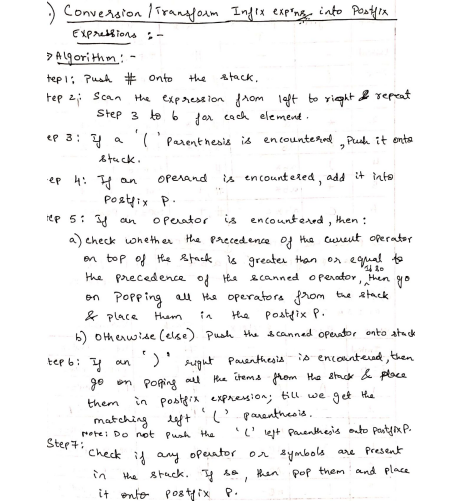 .) Conversion / Transform Infix expns into Postfix
Expressions :-
> Algorithm : -
tep 1: Push # onto the stack.
tep 2: Scan the expression from left to right & repeat
Step 3 to 6 for each element.
ep 3: If a '(' Parenthesis is encountered, Push it onto
stack.
ep 4: If an operand is encountered, add it into
Postfix P.
ep 5: If an operator is encountered, then :
a) check whether the precedence of the current operator
on top of the stack is greater than or equal to
the precedence of the scanned operator, If so then go
on Popping all the operators from the stack
& place them in the postfix P.
b) Otherwise (else) Push the scanned operator onto stack
tep 6: If an ')' right Parenthesis is encountered, then
go on poping all the items from the stack & place
them in postfix expression; till we get the
matching left '(' parenthesis.
note: Do not Push the '(' left Parenthesis onto Postfix P.
Step 7:
Check if any operator or symbols are present
in the stack. If so, then pop them and place
it onto postfix P.